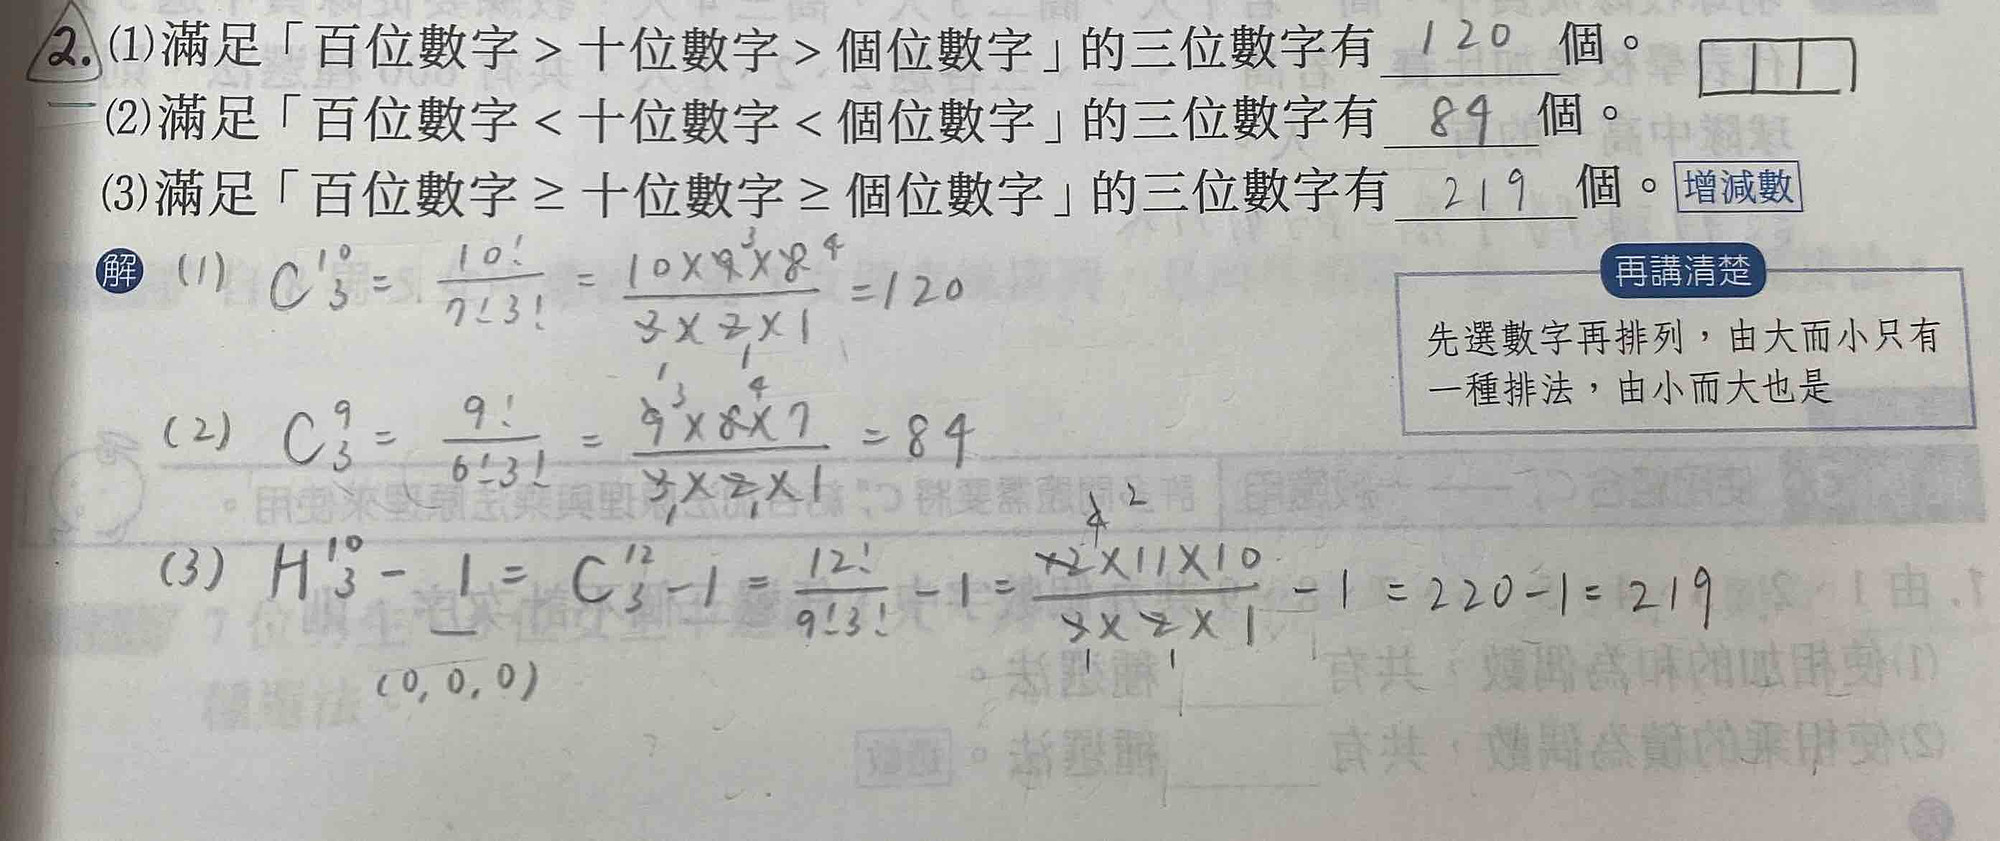 2. (1)滿足「百位數字 > 十位數字 > 個位數字」的三位數字有 120 個。
(2)滿足「百位數字 < 十位數字 < 個位數字」的三位數字有 84 個。
(3)滿足「百位數字 ≥ 十位數字 ≥ 個位數字」的三位數字有 219 個。 增減數
解 (1) C¹⁰₃ = 10!/7!3! = 10×9×8/3×2×1 = 120
3 4
1 1
再講清楚
先選數字再排列，由大而小只有
一種排法，由小而大也是
(2) C⁹₃ = 9!/6!3! = 9×8×7/3×2×1 = 84
3 4
1 1
(3) H¹⁰₃ - 1 = C¹²₃ - 1 = 12!/9!3! - 1 = 12×11×10/3×2×1 - 1 = 220 - 1 = 219
4 2
1 1
(0, 0, 0)